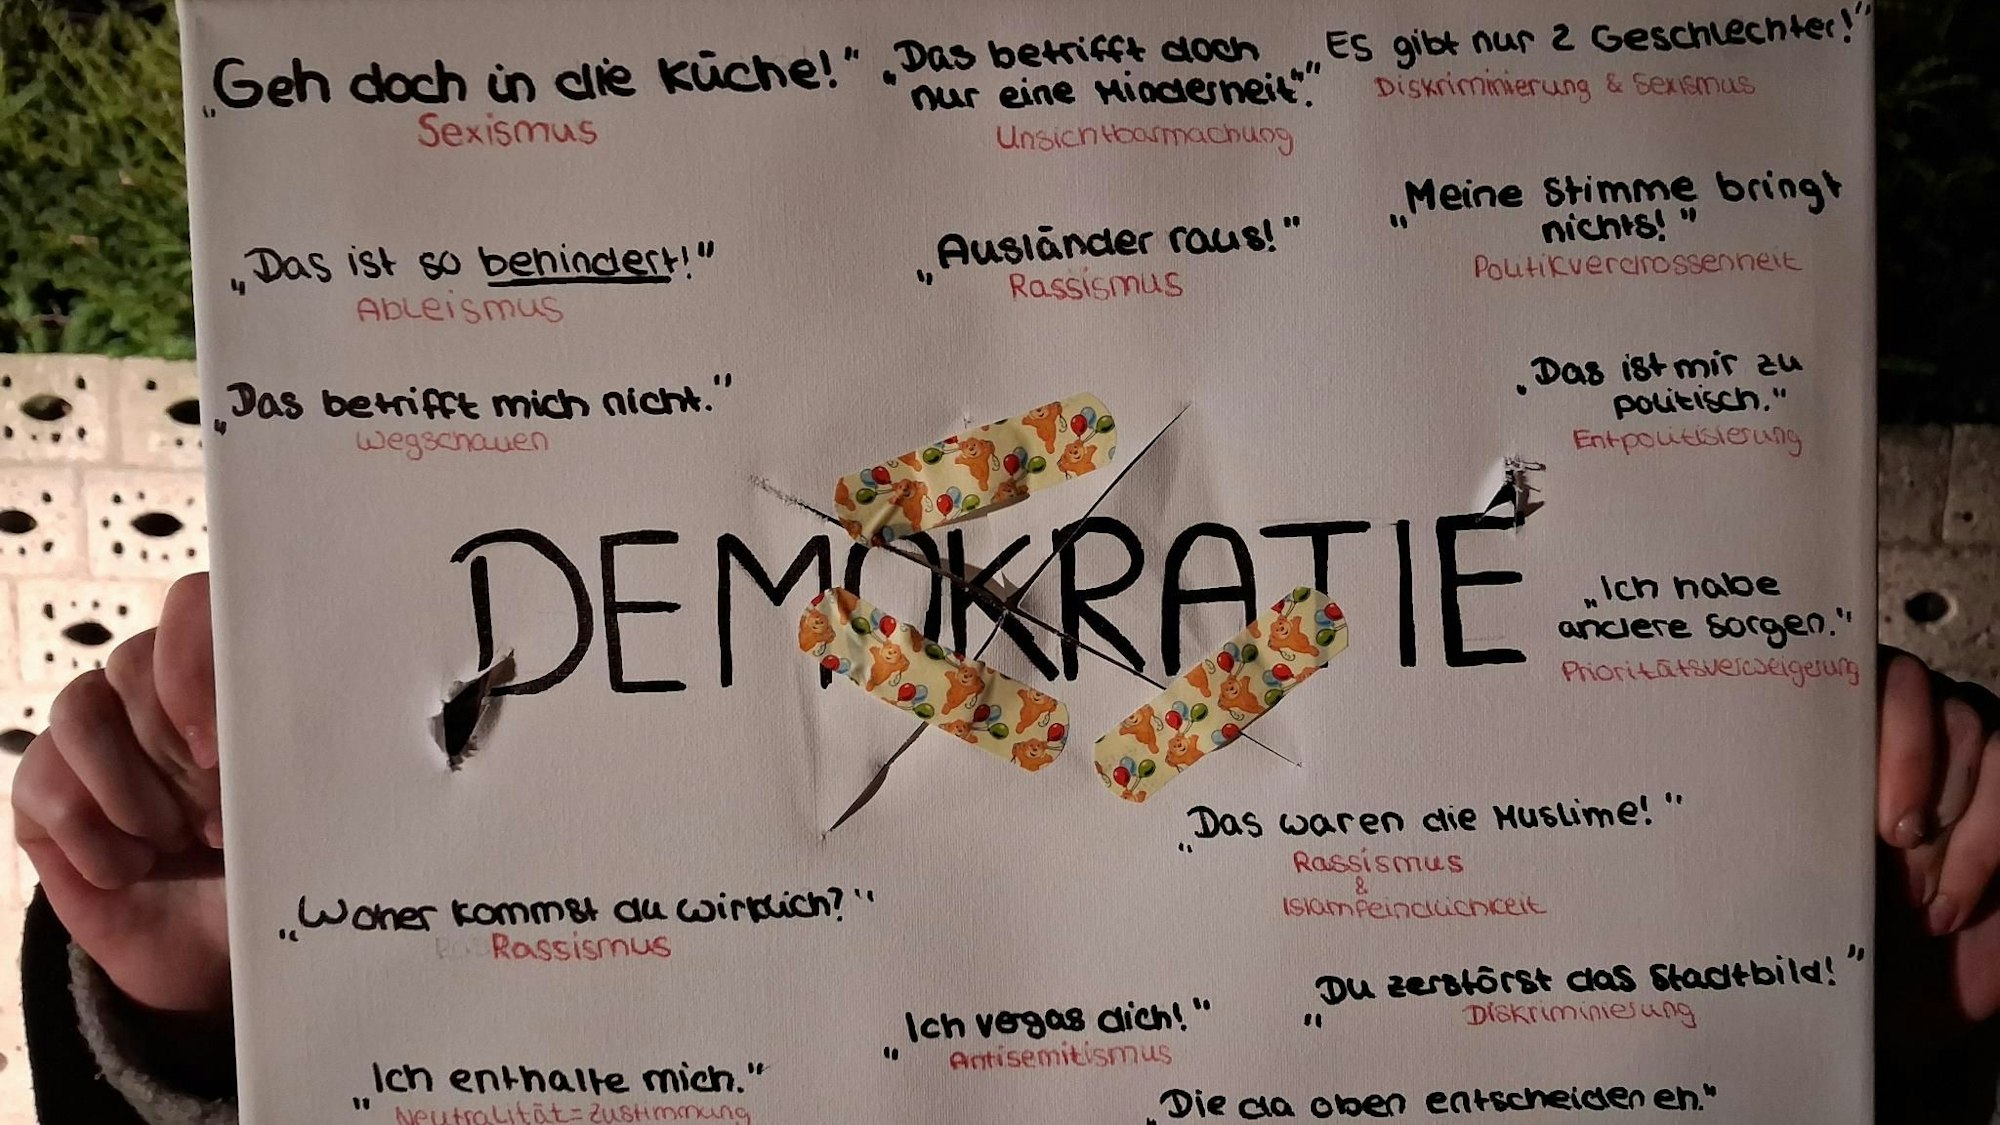 „Geh doch in die Küche!"
Sexismus
„Das betrifft doch
nur eine Minderheit."
Unsichtbarmachung
„Es gibt nur 2 Geschlechter!"
Diskriminierung & Sexismus
„Meine Stimme bringt
nichts!"
Politikverdrossenheit
„Das ist so behindert!"
Ableismus
„Ausländer raus!"
Rassismus
„Das ist mir zu
politisch."
Entpolitisierung
„Das betrifft mich nicht."
Wegschauen
DEMOKRATIE
„Ich habe
andere Sorgen."
Prioritätsverweigerung
„Das waren die Muslime!"
Rassismus
&
Islamfeindlichkeit
„Woher kommst du wirklich?"
Rassismus
„Du zerstörst das Stadtbild!"
Diskriminierung
„Ich vergas dich!"
Antisemitismus
„Ich enthalte mich."
Neutralität=Zustimmung
„Die da oben entscheiden eh."